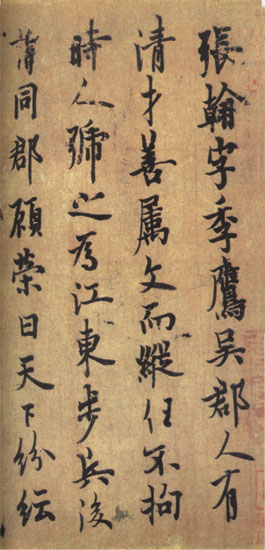 張翰字季鷹吳郡人有
清才善屬文而縱任不拘
時人號之為江東步兵後
謂同郡顧榮曰天下紛紜